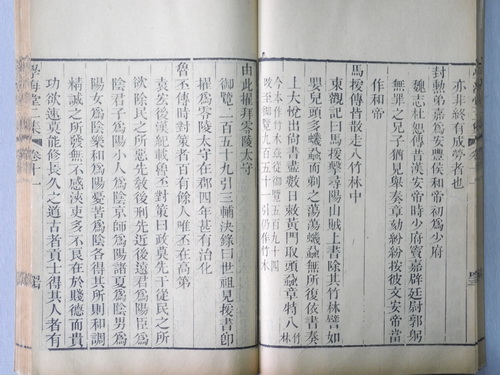 亦非終有成勞者也
封勳弟嘉爲安豐侯和帝初爲少府
魏志杜恕傳昔漢安帝時少府竇嘉辟廷尉郭躬
無罪之兄子猶見舉奏章劾紛紛按彼文安帝當
作和帝
馬援暫皆散走入竹林中
東觀記曰馬援擊尋陽山賊上書除其竹林譬如
嬰兒頭多蟣蝨而剃之蕩蕩蟣蝨無所復依書奏
上大悅出尚書盡數日敕黃門取頭蝨章特入竹
今本作竹木章從御覽五百九十四
改至御覽九百五十一引仍作竹木
由此擢拜零陵太守
御覽二百五十九引三輔決錄曰世祖見援書即
擢爲零陵太守在郡四年甚有治化
魯丕傳時對策者百有餘人唯丕在高第
袁宏後漢紀載丕對策曰政莫先于從民之所
欲除民之所惡先敎後刑先近後遠君爲陽臣爲
陰君子爲陽小人爲陰京師爲陽諸夏爲陰男爲
陽女爲陰樂和爲陽憂苦爲陰各得其所則和調
精誠之所發無不感浹吏多不良在於賤德而貴
功欲速莫能修長久之道古者貢士得其人者有
學海堂二集 卷十一